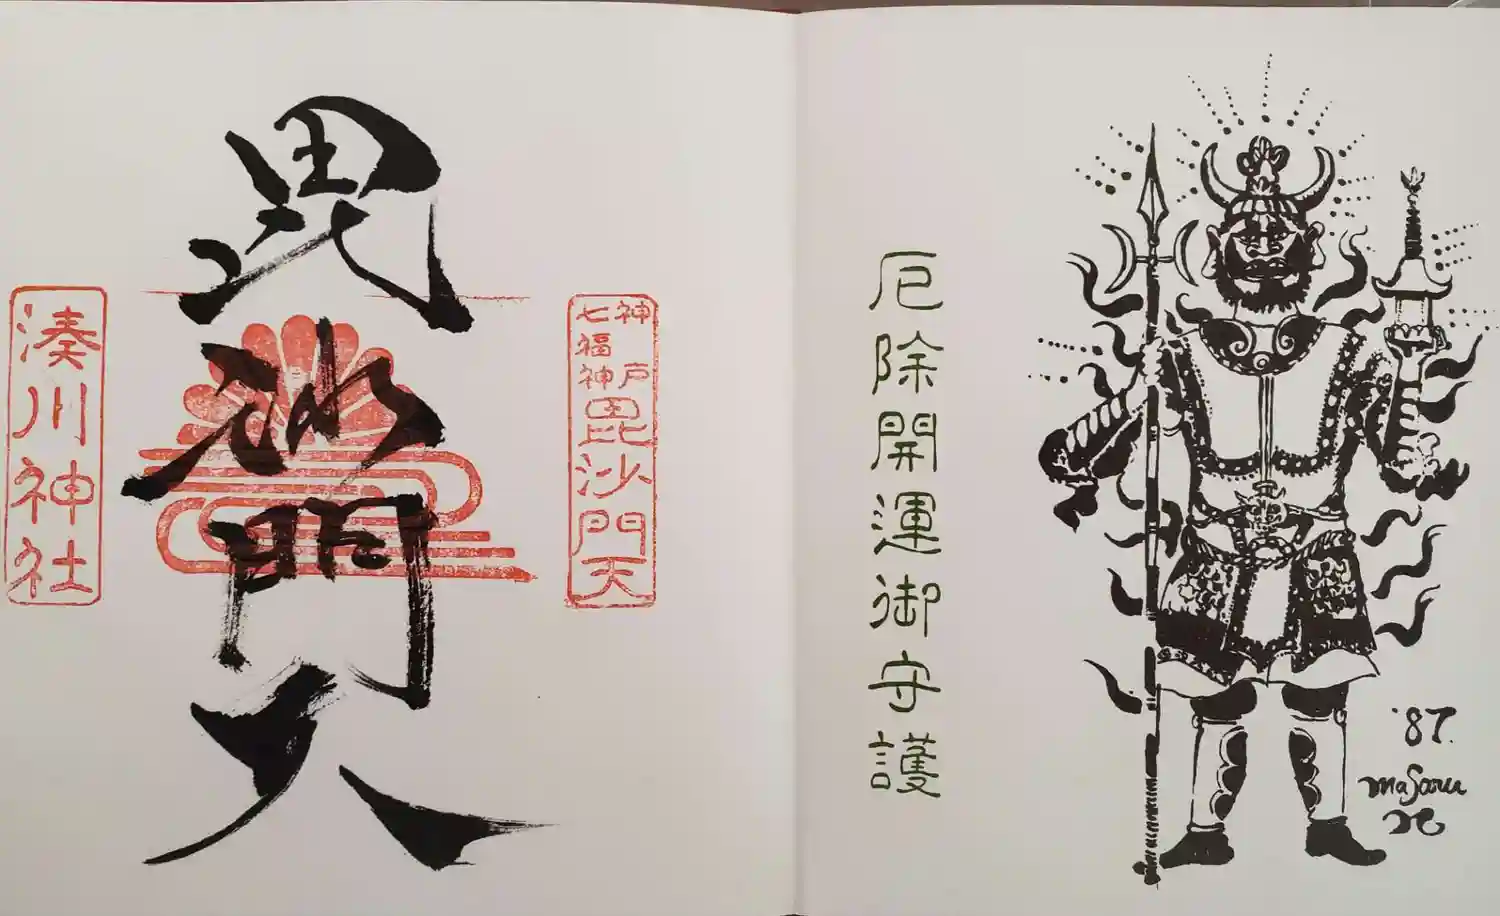 厄除開運御守護
'87.
masaru
神戸
七福神
毘沙門天
毘沙門天
湊川神社